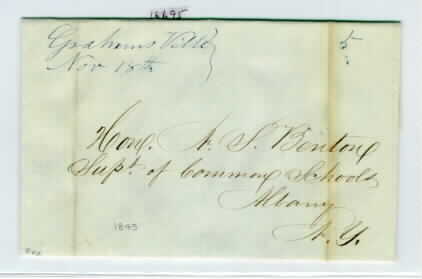 Grahams Ville
5
Nov 18th
Hon. N. S. Benton
Supt. of Common Schools
Albany
N. Y.
1845